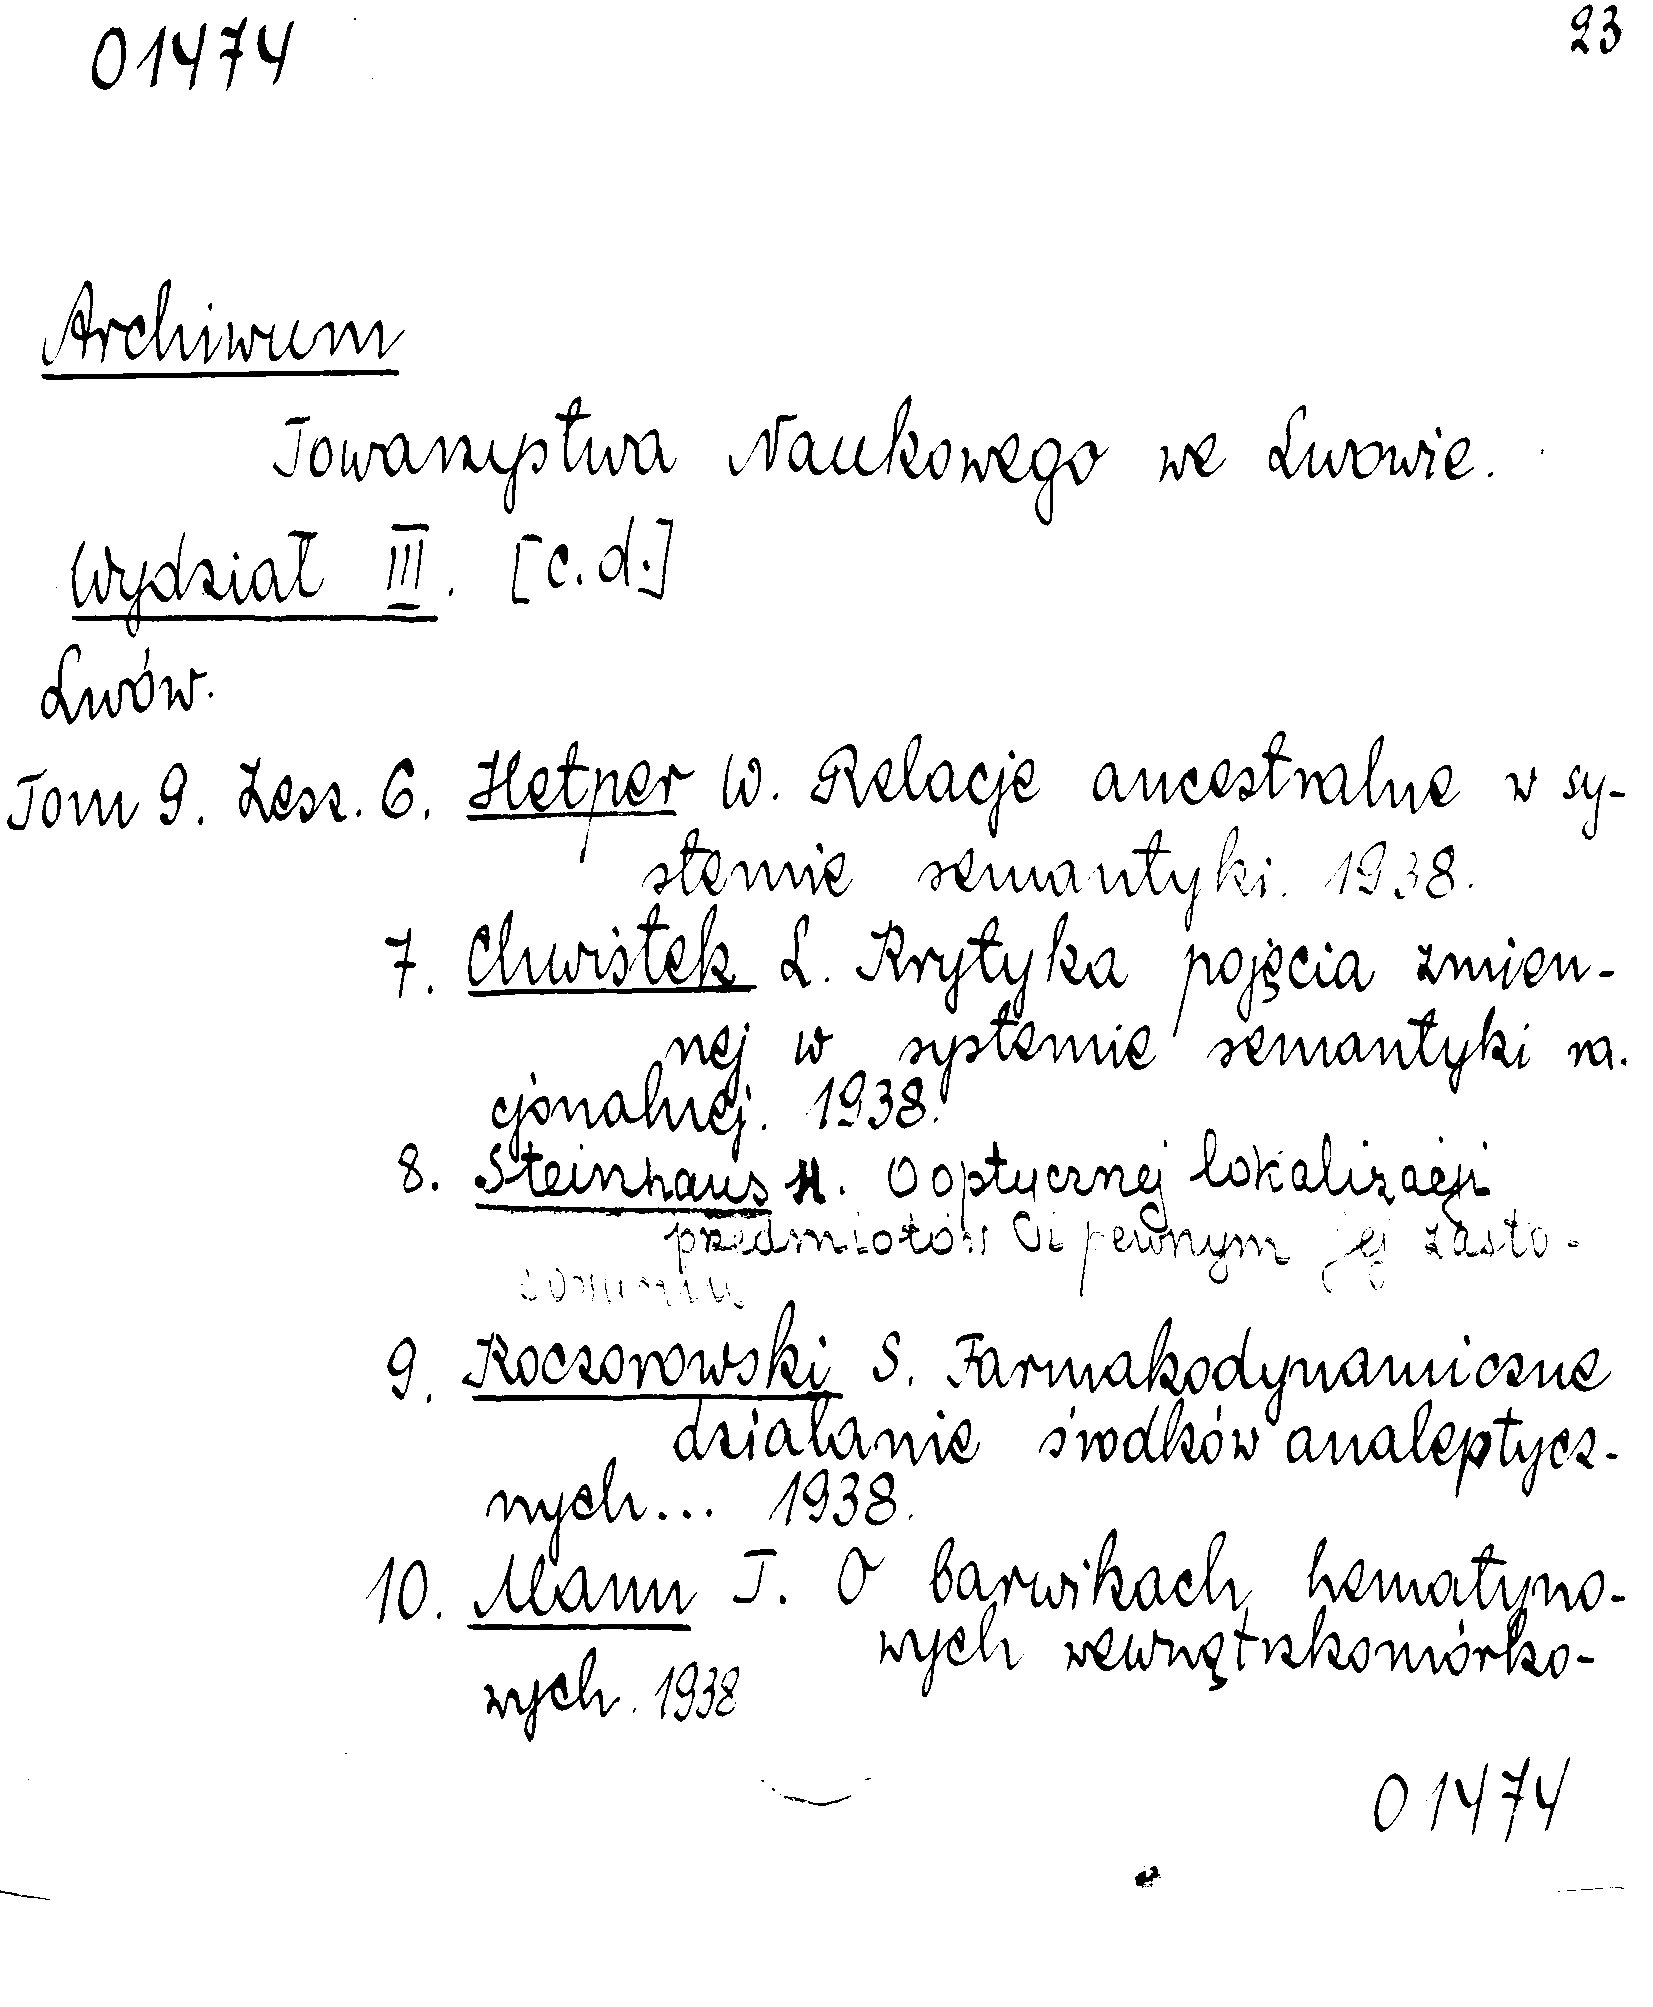 01474
23
Archiwum
Towarzystwa Naukowego we Lwowie.
Wydział III. [c.d.]
Lwów.
Tom 9. Zesz. 6. Hetper W. Relacje ancestralne w sy-
stemie semantyki. 1938.
7. Chwistek L. Krytyka pojęcia zmien-
nej w systemie semantyki ra-
cjonalnej. 1938.
8. Steinhaus H. O optycznej lokalizacji
przedmiotów i pewnym jej zasto-
sowaniu
9. Koczorowski S. Farmakodynamiczne
działanie środków analeptycz-
nych... 1938.
10. Mann T. O barwikach hematyno-
wych wewnątrzkomórko-
wych. 1938
01474